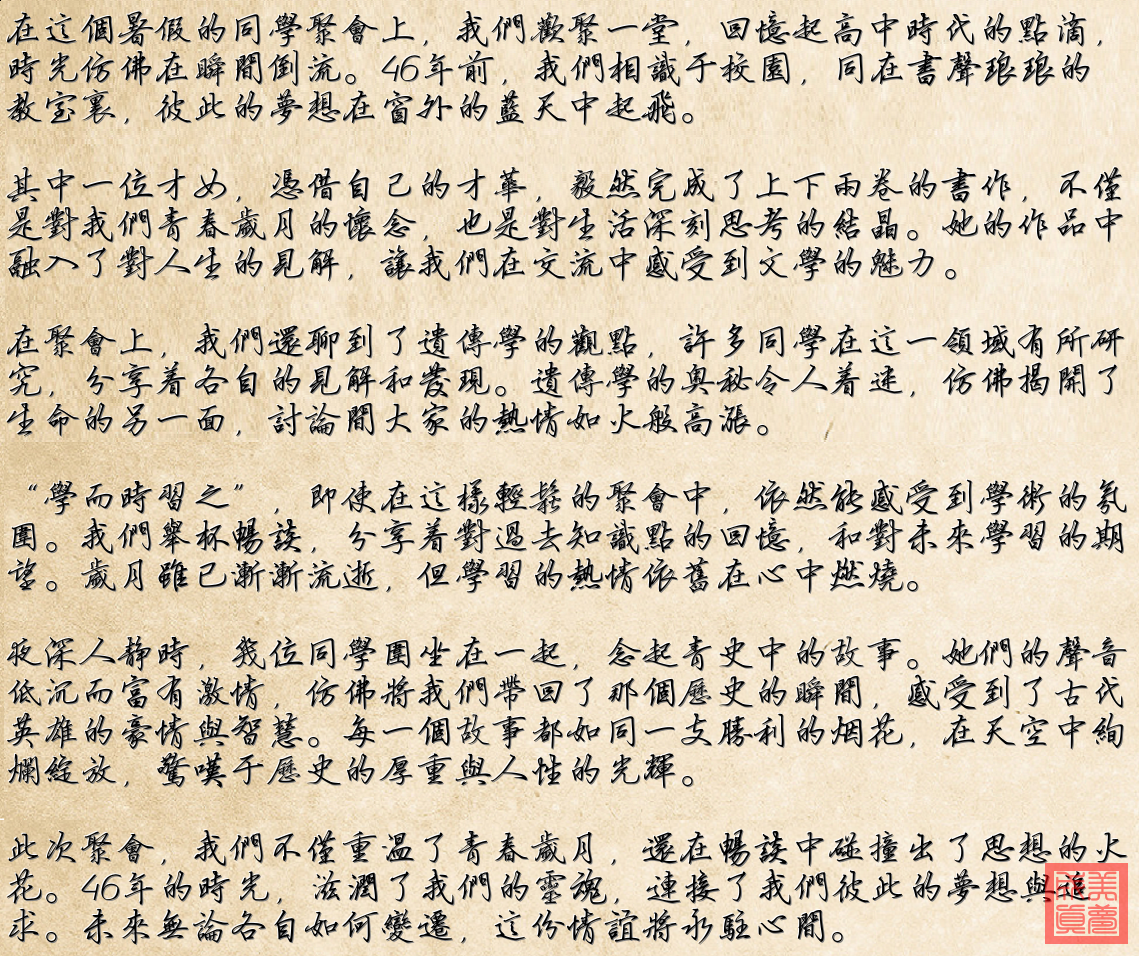 在這個暑假的同學聚會上，我們歡聚一堂，回憶起高中時代的點滴，
時光仿佛在瞬間倒流。46年前，我們相識于校園，同在書聲琅琅的
教室裏，彼此的夢想在窗外的藍天中起飛。
其中一位才女，憑借自己的才華，毅然完成了上下兩卷的書作，不僅
是對我們青春歲月的懷念，也是對生活深刻思考的結晶。她的作品中
融入了對人生的見解，讓我們在交流中感受到文學的魅力。
在聚會上，我們還聊到了遺傳學的觀點，許多同學在這一領域有所研
究，分享着各自的見解和發現。遺傳學的奧秘令人着迷，仿佛揭開了
生命的另一面，討論間大家的熱情如火般高漲。
“學而時習之”，即使在這樣輕鬆的聚會中，依然能感受到學術的氛
圍。我們舉杯暢談，分享着對過去知識點的回憶，和對未來學習的期
望。歲月雖已漸漸流逝，但學習的熱情依舊在心中燃燒。
夜深人静時，幾位同學圍坐在一起，念起青史中的故事。她們的聲音
低沉而富有激情，仿佛將我們帶回了那個歷史的瞬間，感受到了古代
英雄的豪情與智慧。每一個故事都如同一支勝利的烟花，在天空中絢
爛綻放，驚嘆于歷史的厚重與人性的光輝。
此次聚會，我們不僅重溫了青春歲月，還在暢談中碰撞出了思想的火
花。46年的時光，滋潤了我們的靈魂，連接了我們彼此的夢想與追
求。未來無論各自如何變遷，這份情誼將永駐心間。